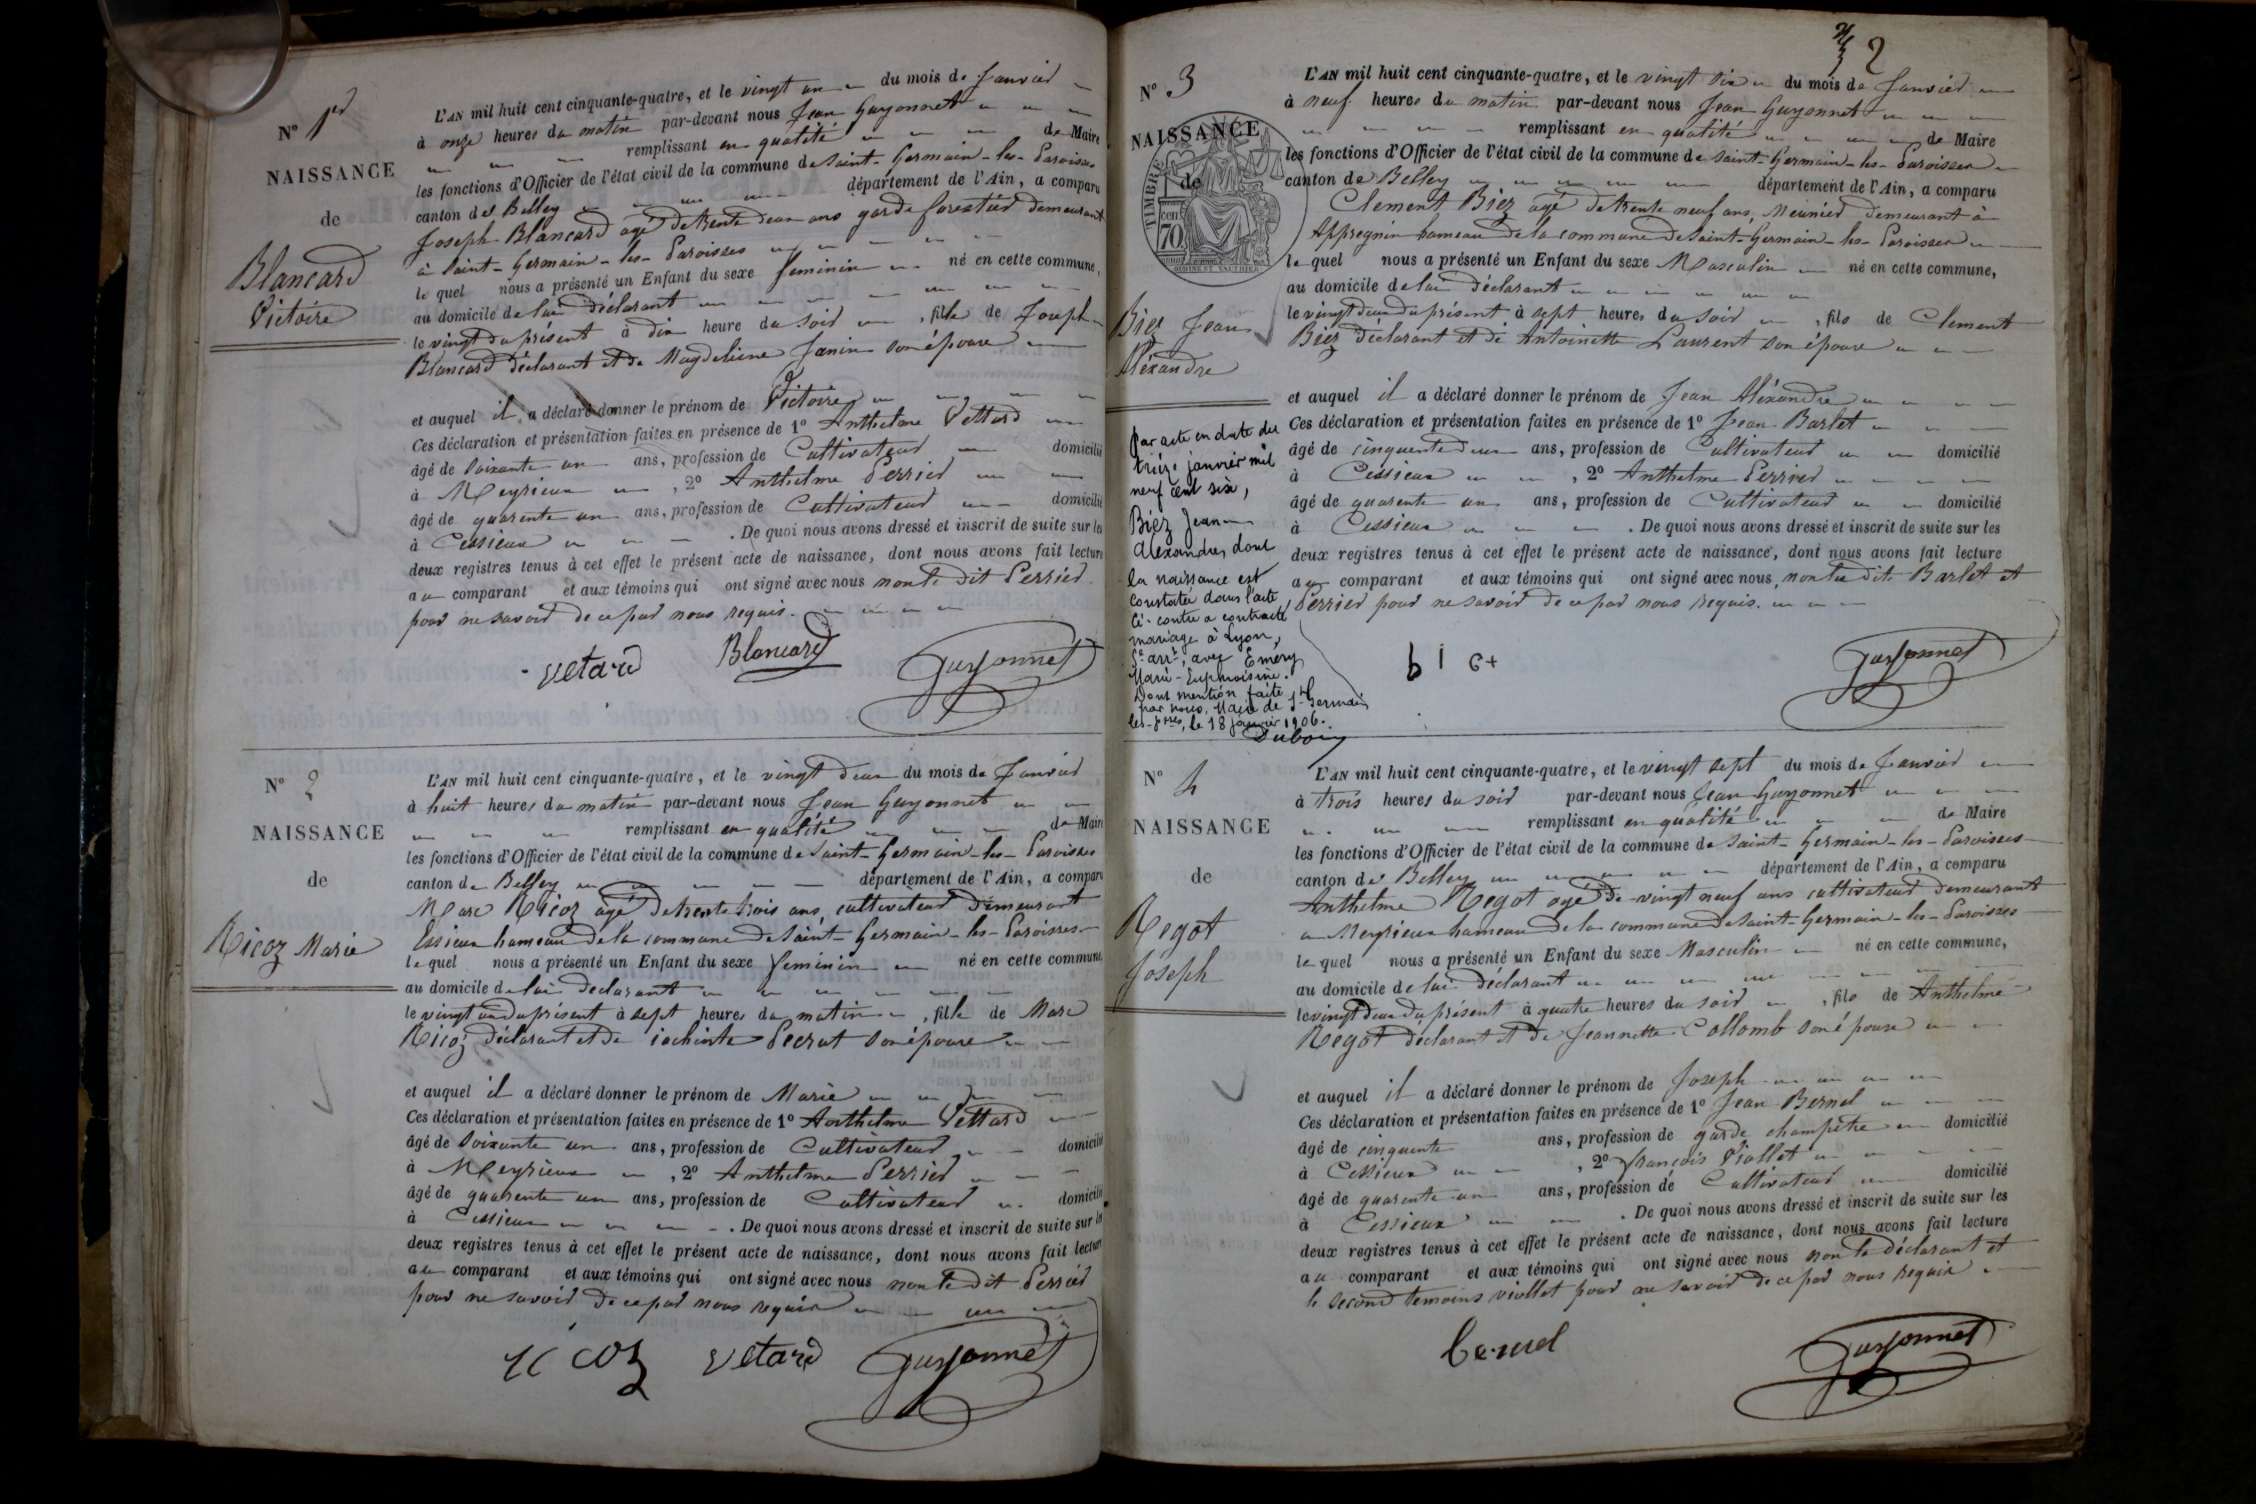 N° 1er
NAISSANCE
de
Blancard
Victoire
L'AN mil huit cent cinquante-quatre, et le vingt un du mois de Janvier
à onze heures du matin par-devant nous Jean Guyonnet
remplissant en qualité de Maire
les fonctions d'Officier de l'état civil de la commune de Saint-Germain-les-Paroisses
canton de Belley département de l'Ain, a comparu
Joseph Blancard agé de trente deux ans garde forestier demeurant
à Saint-Germain-les-Paroisses
le quel nous a présenté un Enfant du sexe feminin né en cette commune,
au domicile de lui déclarant
le vingt du présent à dix heure du soir , fille de Joseph
Blancard déclarant et de Magdeleine Janin son épouse
et auquel il a déclaré donner le prénom de Victoire
Ces déclaration et présentation faites en présence de 1° Anthelme Vettard
âgé de soixante un ans, profession de Cultivateur domicilié
à Meyrieux , 2° Anthelme Perrier
âgé de quarente un ans, profession de Cultivateur domicilié
à Cessieux . De quoi nous avons dressé et inscrit de suite sur les
deux registres tenus à cet effet le présent acte de naissance, dont nous avons fait lecture
au comparant et aux témoins qui ont signé avec nous non le dit Perrier
pour ne savoir de ce par nous requis.
vetard Blancard Guyonnet
N° 2
NAISSANCE
de
Ricoz Marie
L'AN mil huit cent cinquante-quatre, et le vingt deux du mois de Janvier
à huit heures du matin par-devant nous Jean Guyonnet
remplissant en qualité de Maire
les fonctions d'Officier de l'état civil de la commune de Saint-Germain-les-Paroisses
canton de Belley département de l'Ain, a comparu
Marc Ricoz agé de trente trois ans, cultivateur demeurant
Essieux hameau de la commune de Saint-Germain-les-Paroisses
le quel nous a présenté un Enfant du sexe feminin né en cette commune
au domicile de lui déclarant
le vingt un du présent à sept heures du matin , fille de Marc
Ricoz déclarant et de iachinte Pecrut son épouse
et auquel il a déclaré donner le prénom de Marie
Ces déclaration et présentation faites en présence de 1° Anthelme Vettard
âgé de soixante un ans, profession de Cultivateur domicilié
à Meyrieux , 2° Anthelme Perrier
âgé de quarente un ans, profession de Cultivateur domicilié
à Cessieux . De quoi nous avons dressé et inscrit de suite sur les
deux registres tenus à cet effet le présent acte de naissance, dont nous avons fait lecture
au comparant et aux témoins qui ont signé avec nous non le dit Perrier
pour ne savoir de ce par nous requis
Ricoz vetard Guyonnet
2
N° 3
NAISSANCE
de
TIMBRE
cen 70
Biez Jean
Aléxandre
par acte en date du
treize janvier mil
neuf cent six,
Biéz Jean-
Alexandre, dont
la naissance est
constatée dans l'acte
ci-contre a contracté
mariage à Lyon,
5e arrt, avec Eméry
Marie-Euphroisine.
Dont mention faite
par nous, Maire de St Germain
les-psses, le 18 janvier 1906.
Dubois
L'AN mil huit cent cinquante-quatre, et le vingt six du mois de Janvier
à neuf heures du matin par-devant nous Jean Guyonnet
remplissant en qualité de Maire
les fonctions d'Officier de l'état civil de la commune de Saint-Germain-les-Paroisses
canton de Belley département de l'Ain, a comparu
Clement Biez agé de trente neuf ans, Meunier demeurant à
Appregnin hameau de la commune de Saint-Germain-les-Paroisses
le quel nous a présenté un Enfant du sexe Masculin né en cette commune,
au domicile de lui déclarant
le vingt deux du présent à sept heures du soir , fils de Clement
Biez déclarant et de Antoinette Laurent son épouse
et auquel il a déclaré donner le prénom de Jean Aléxandre
Ces déclaration et présentation faites en présence de 1° Jean Barlet
âgé de cinquente deux ans, profession de Cultivateur domicilié
à Cessieux , 2° Anthelme Perrier
âgé de quarente un ans, profession de Cultivateur domicilié
à Cessieux . De quoi nous avons dressé et inscrit de suite sur les
deux registres tenus à cet effet le présent acte de naissance, dont nous avons fait lecture
au comparant et aux témoins qui ont signé avec nous, non les dits Barlet et
Perrier pour ne savoir de ce par nous requis.
Guyonnet
N° 4
NAISSANCE
de
Regot
Joseph
L'AN mil huit cent cinquante-quatre, et le vingt sept du mois de Janvier
à trois heures du soir par-devant nous Jean Guyonnet
remplissant en qualité de Maire
les fonctions d'Officier de l'état civil de la commune de Saint-Germain-les-Paroisses
canton de Belley département de l'Ain, a comparu
Anthelme Regot agé de vingt neuf ans cultivateur demeurant
a Meyrieux hameau de la commune de Saint-Germain-les-Paroisses
le quel nous a présenté un Enfant du sexe Masculin né en cette commune,
au domicile de lui déclarant
le vingt deux du présent à quatre heures du soir , fils de Anthelme
Regot déclarant et de Jeannette Collomb son épouse
et auquel il a déclaré donner le prénom de Joseph
Ces déclaration et présentation faites en présence de 1° Jean Bernel
âgé de cinquente ans, profession de garde champêtre domicilié
à Cessieux , 2° françois Viollet
âgé de quarente un ans, profession de Cultivateur domicilié
à Cessieux . De quoi nous avons dressé et inscrit de suite sur les
deux registres tenus à cet effet le présent acte de naissance, dont nous avons fait lecture
au comparant et aux témoins qui ont signé avec nous non le déclarant et
le second temoins viollet pour ne savoir de ce par nous requis
bernel Guyonnet